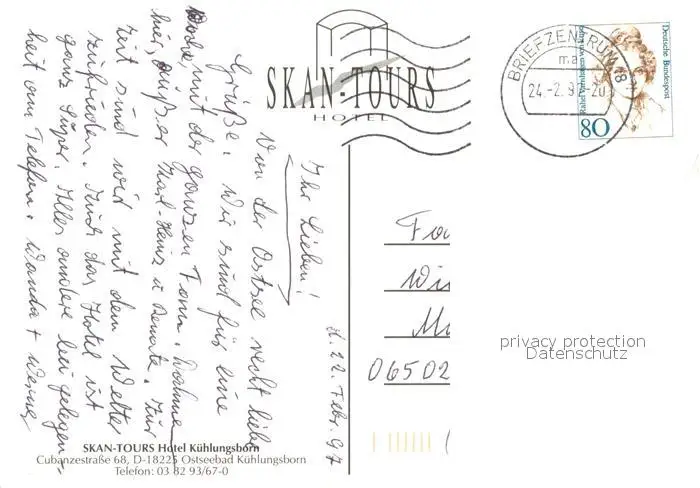 SKAN-TOURS
HOTEL
BRIEFZENTRUM 18
ma
24.-2.97-20
Deutsche Bundespost
Rahel Varnhagen von Ense
80
d. 22. Febr. 97
Ihr Lieben!
Von der Ostsee recht liebe
Grüße. Wir sind für eine
Woche mit der ganzen Fam.
hier, außer Karl-Heinz u Renate. Zur
Zeit sind wir mit dem Wetter
zufrieden. Auch das Hotel ist
ganz super. Alles andere bei Gelegen-
heit am Telefon. Wanda + Werner
Fa
Wi
06502
privacy protection
Datenschutz
SKAN-TOURS Hotel Kühlungsborn
Cubanzestraße 68, D-18225 Ostseebad Kühlungsborn
Telefon: 03 82 93/67-0